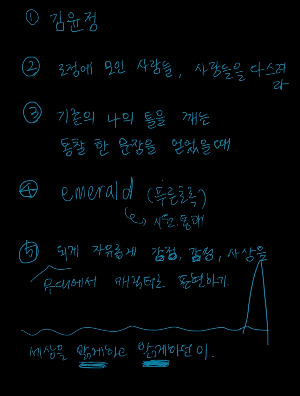 ① 김윤정
② 로정에 모인 사람들, 사랑들을 다스려
라
③ 기존의 나의 틀을 깨는
통찰 한 문장을 얻었을때
④ emerald (푸른초록)
↳ 사고.통찰
⑤ 되게 자유롭게 감정, 감정, 사상을
무대에서 캐릭터로 표현하기
세상을 맑게하고 맑게하던 이.